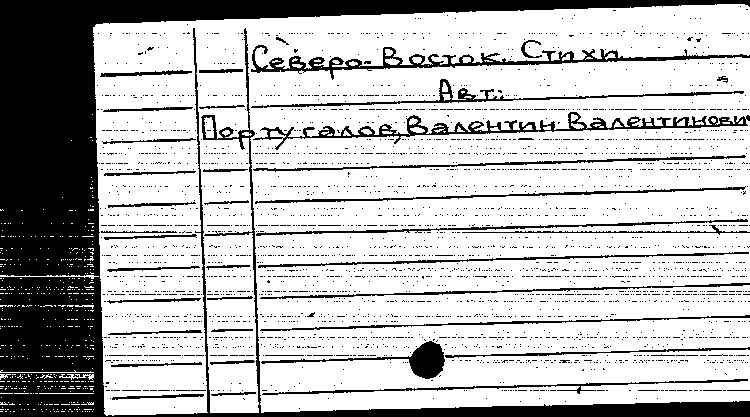 Северо-Восток. Стихи
Авт.:
Португалов, Валентин Валентинови